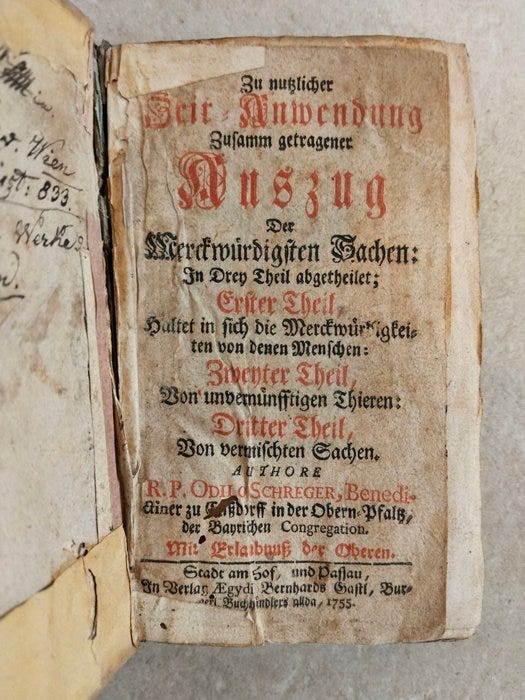 Wien
833.
Werke
Zu nutzlicher
Zeit-Anwendung
Zusamm getragener
Auszug
Der
Merckwürdigsten Sachen:
In Drey Theil abgetheilet;
Erster Theil,
Haltet in sich die Merckwürdigkei-
ten von denen Menschen:
Zweyter Theil,
Von unvernünfftigen Thieren:
Dritter Theil,
Von vermischten Sachen.
AUTHORE
R. P. ODILO SCHREGER, Benedi-
ctiner zu Enßdorff in der Obern-Pfaltz,
der Bayrichen Congregation.
Mit Erlaubnuß der Oberen.
Stadt am Hof, und Passau,
In Verlag Ægydi Bernhards Gastl, Bur-
Buchhindlers allda, 1755.